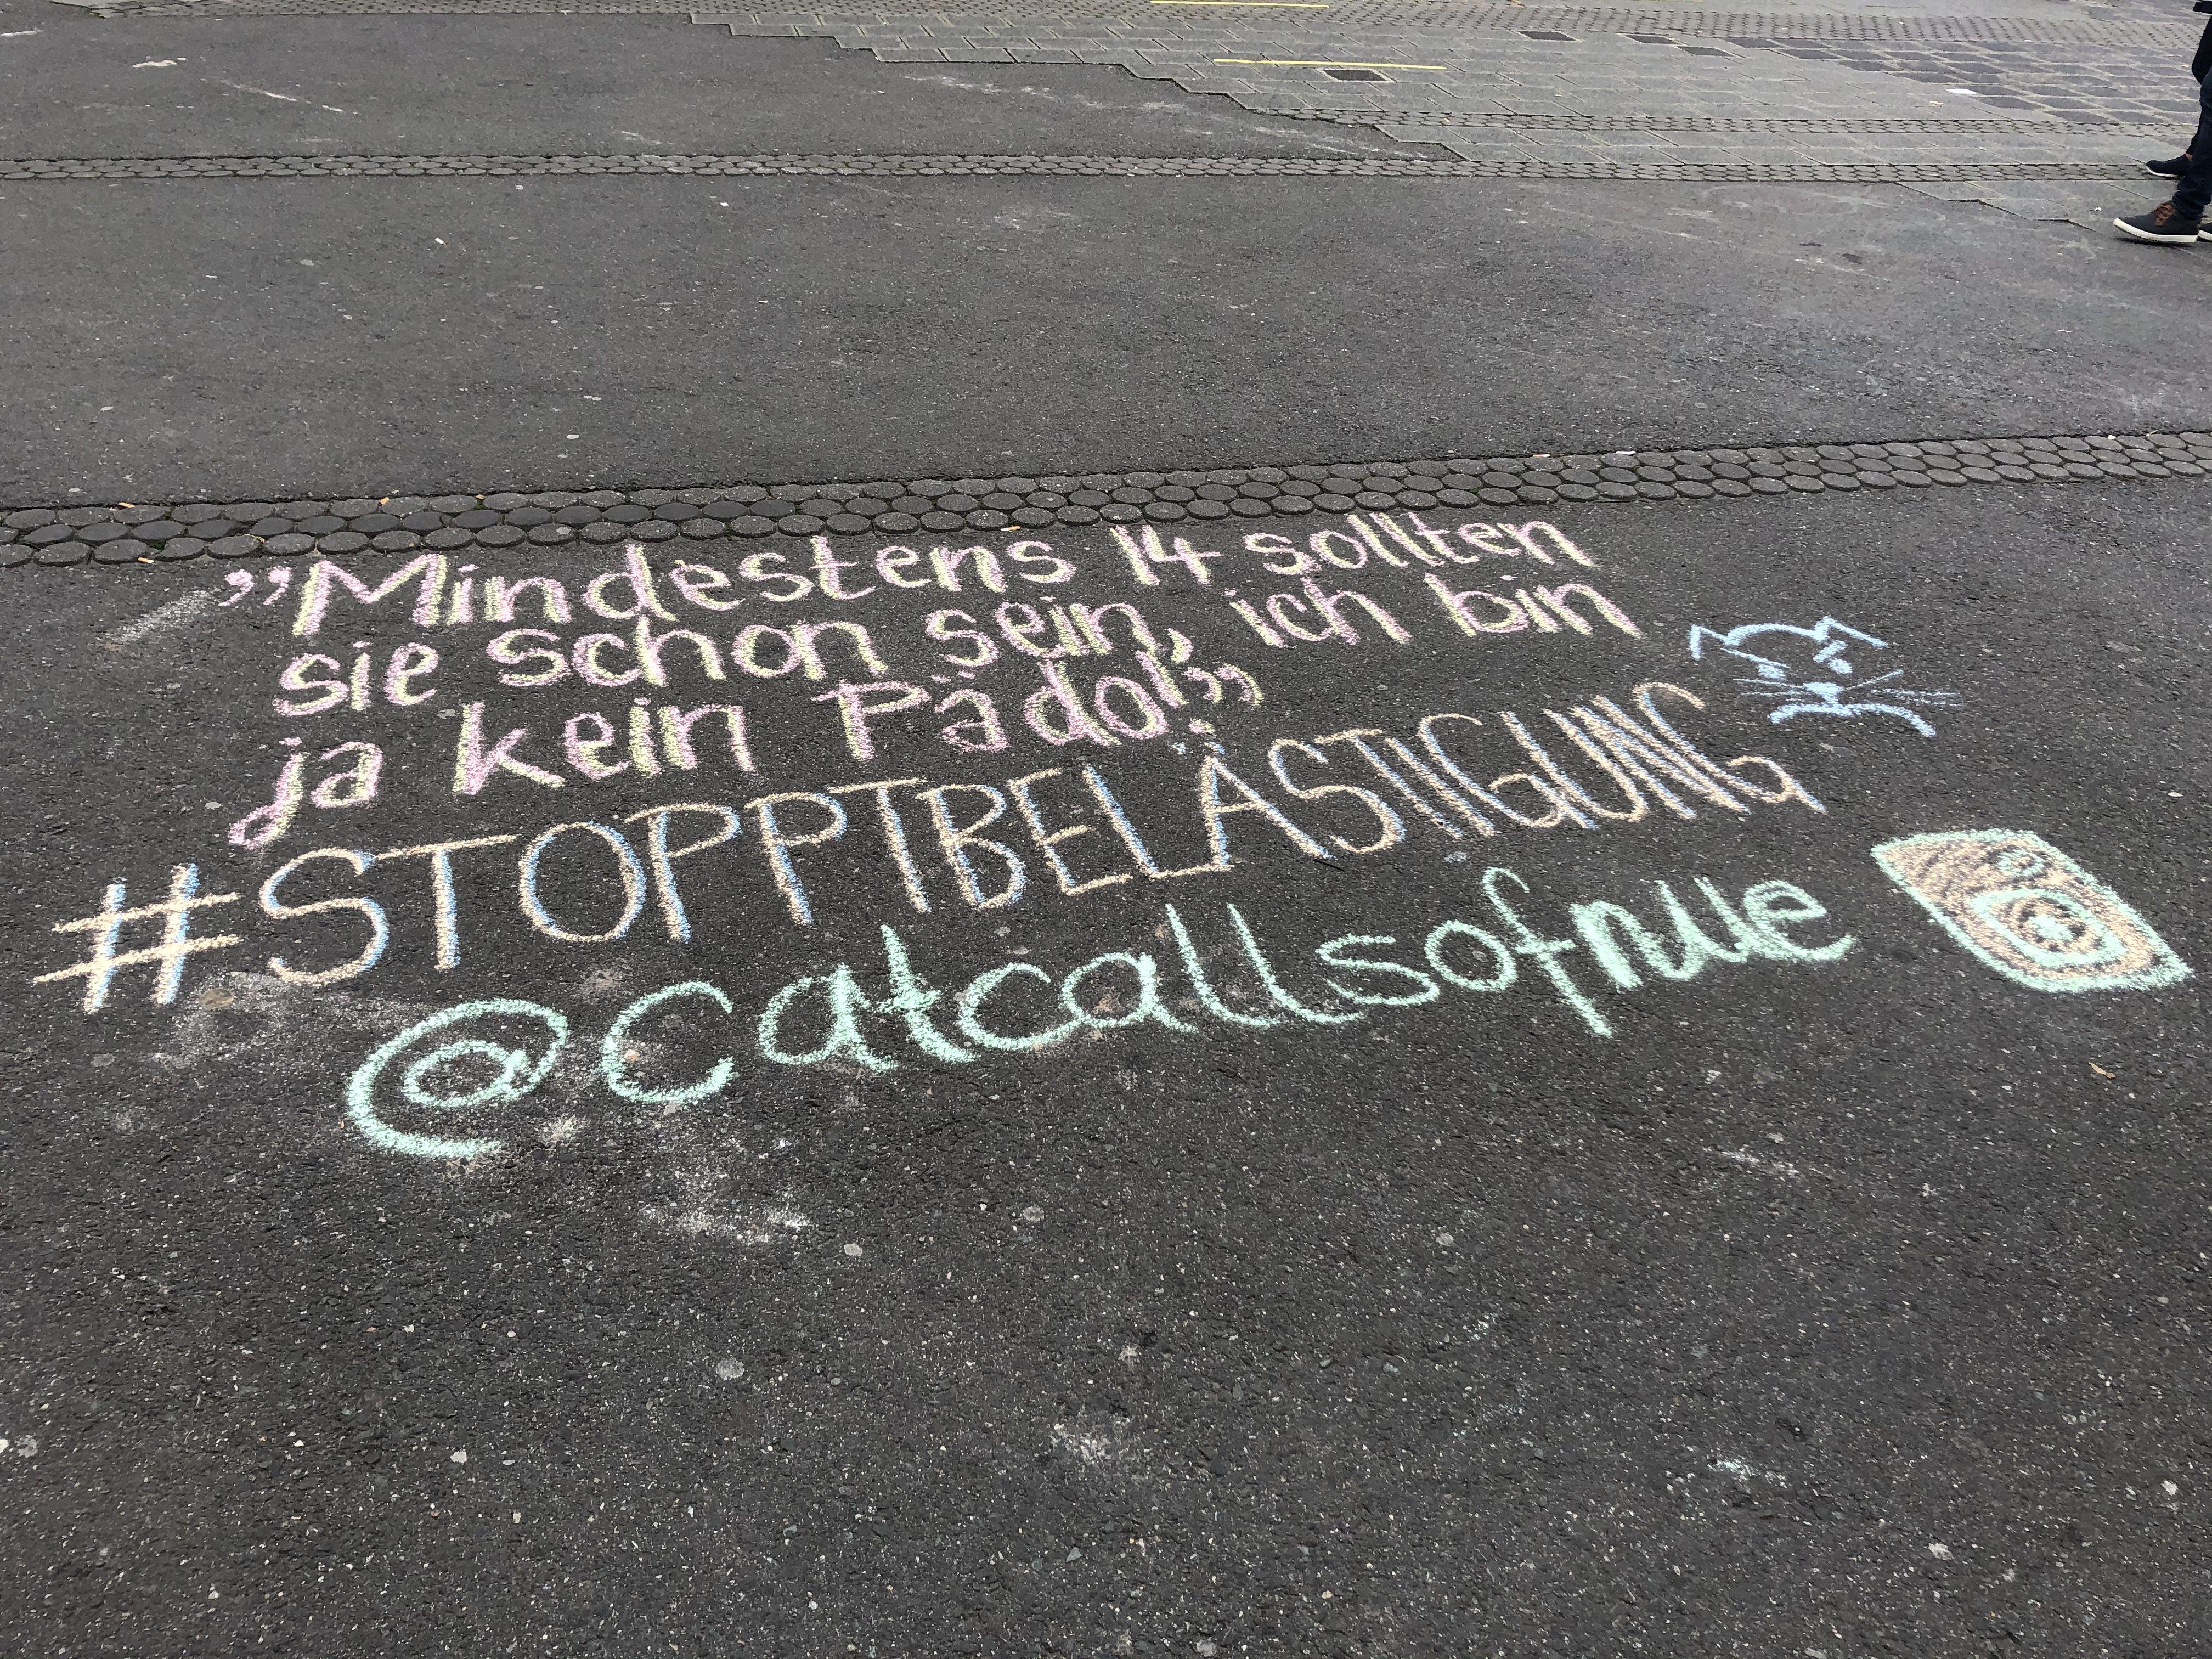 ”Mindestens 14 sollten
sie schon sein, ich bin
ja kein Pädo!”
#STOPPTBELÄSTIGUNG
@catcallsofnue